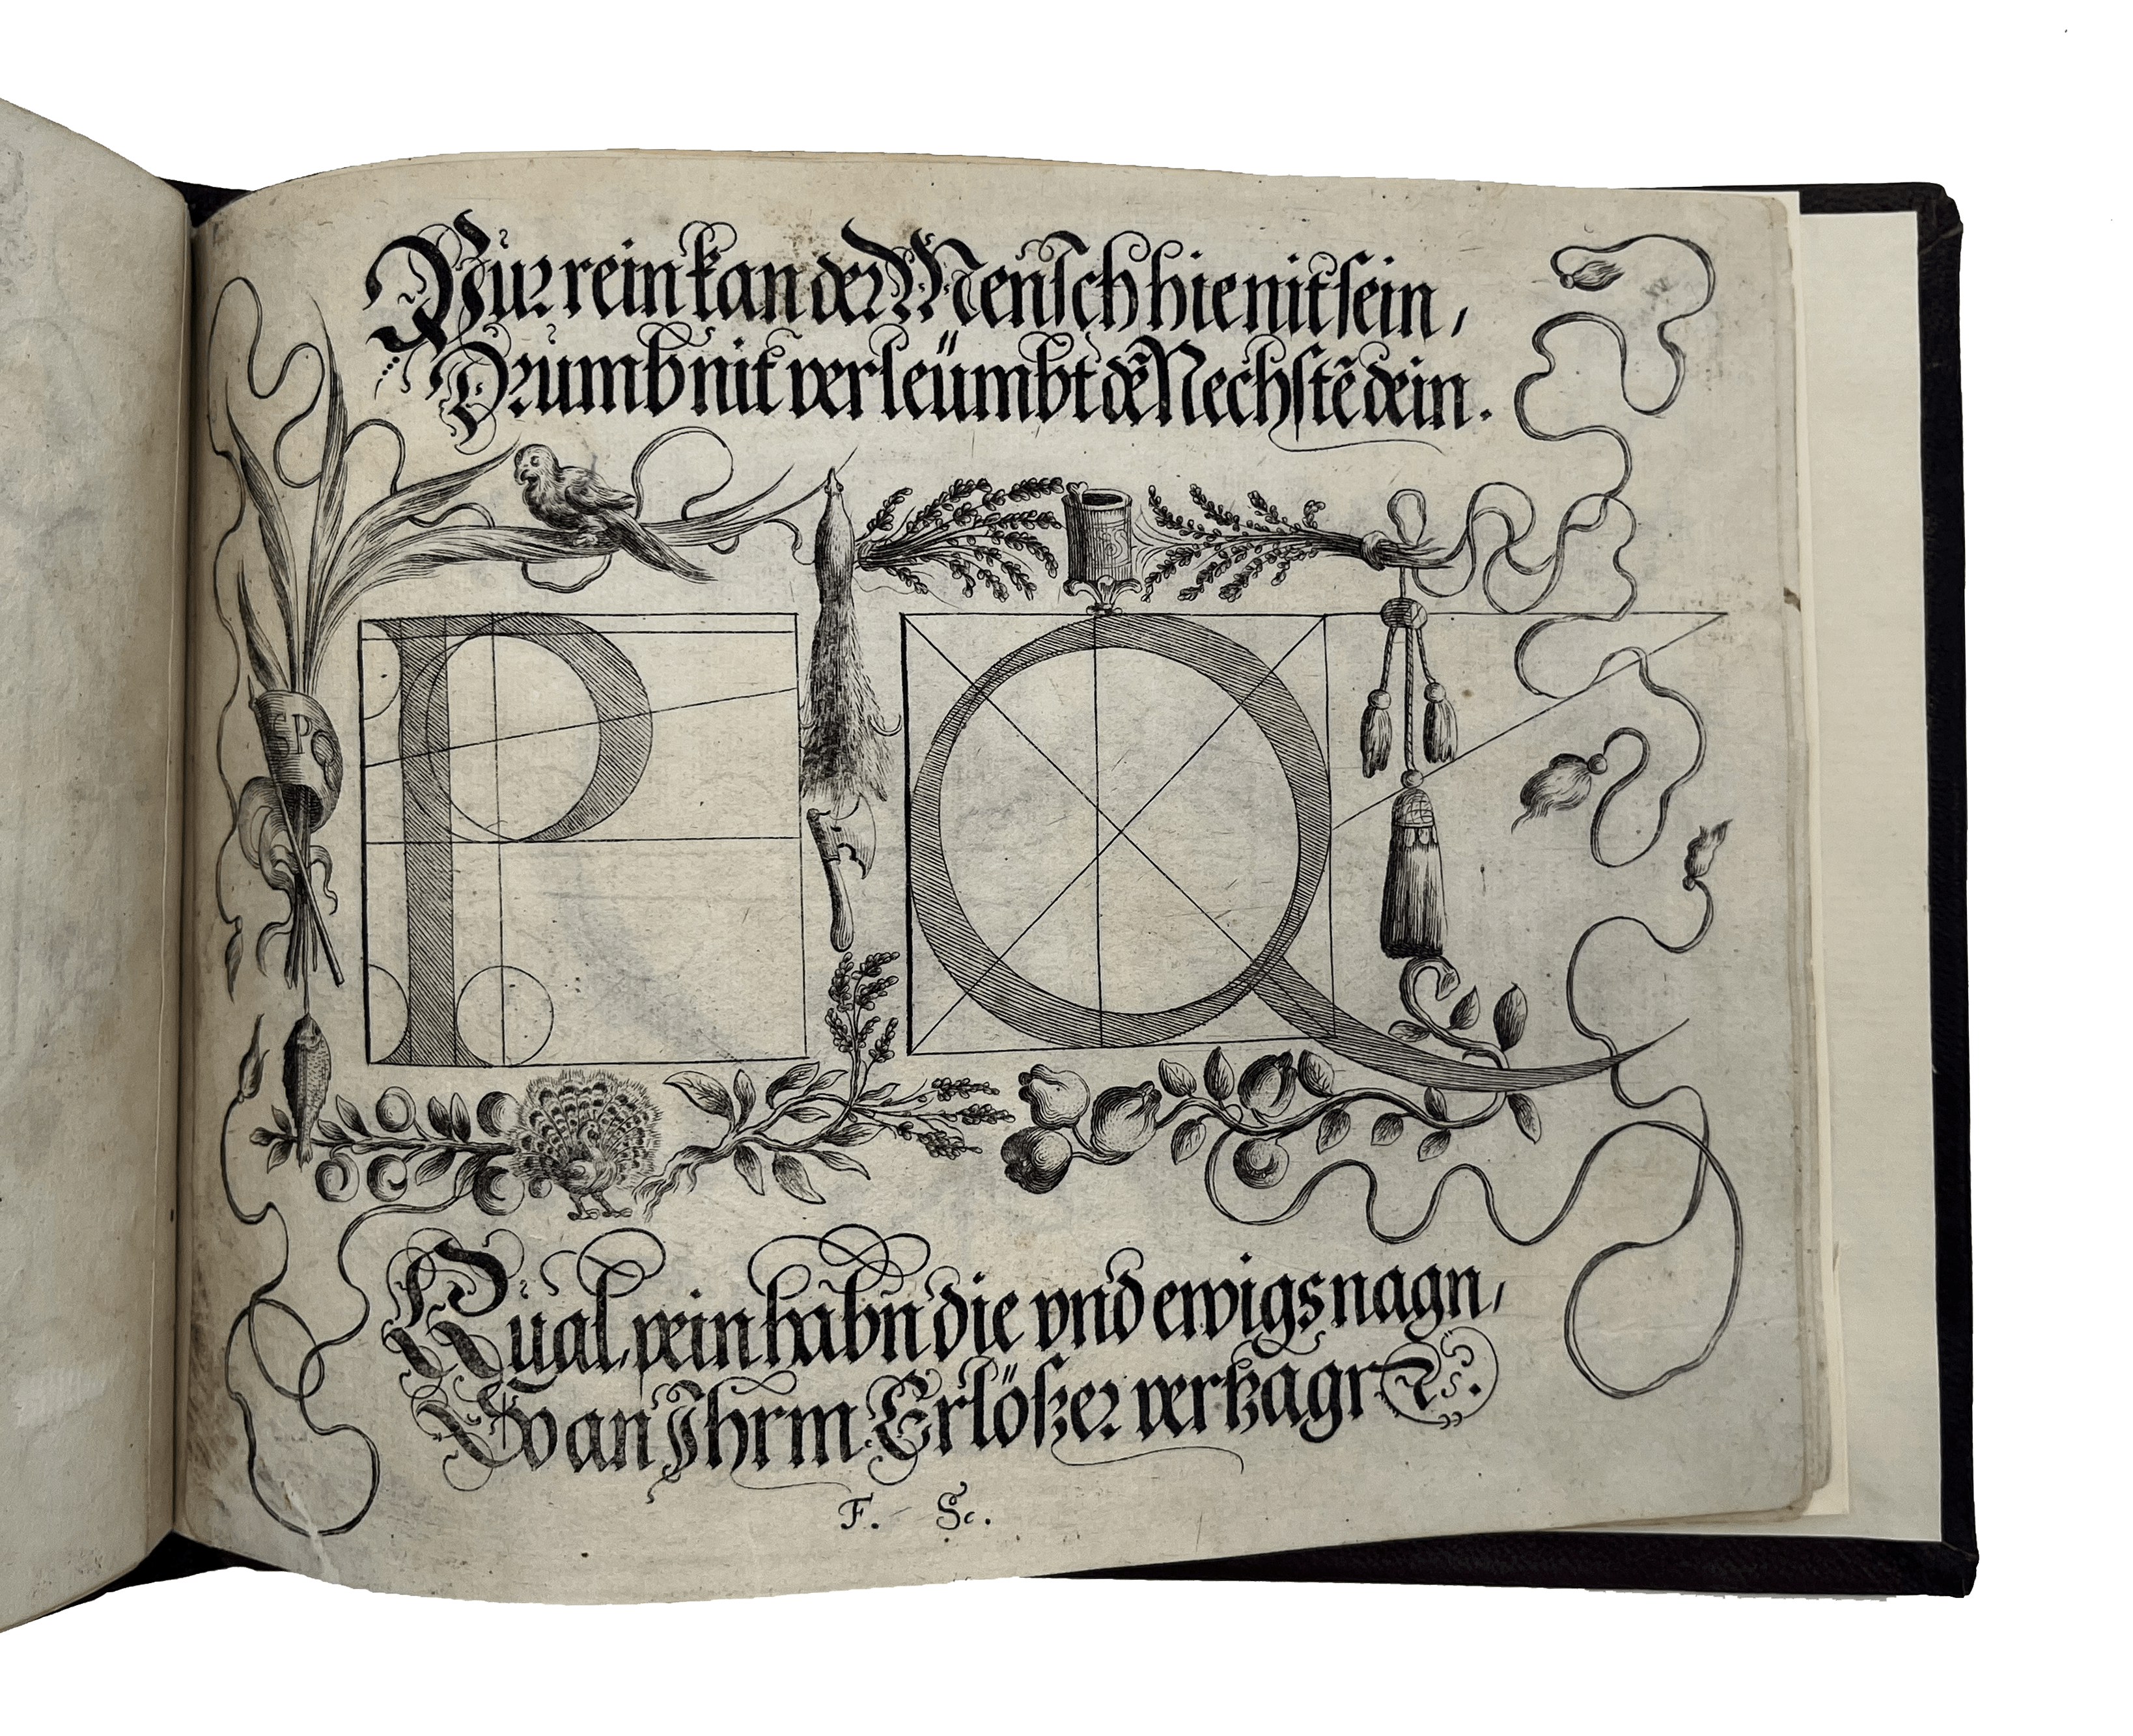 Pur rein kan der Mensch hie nit sein,
Drumb nit verleümbt dẽ Nechstẽ dein.
P Q
Qual, pein habn die vnd ewigs nagn,
So an Ihrm Erlößer vertzagn
F. Sc.